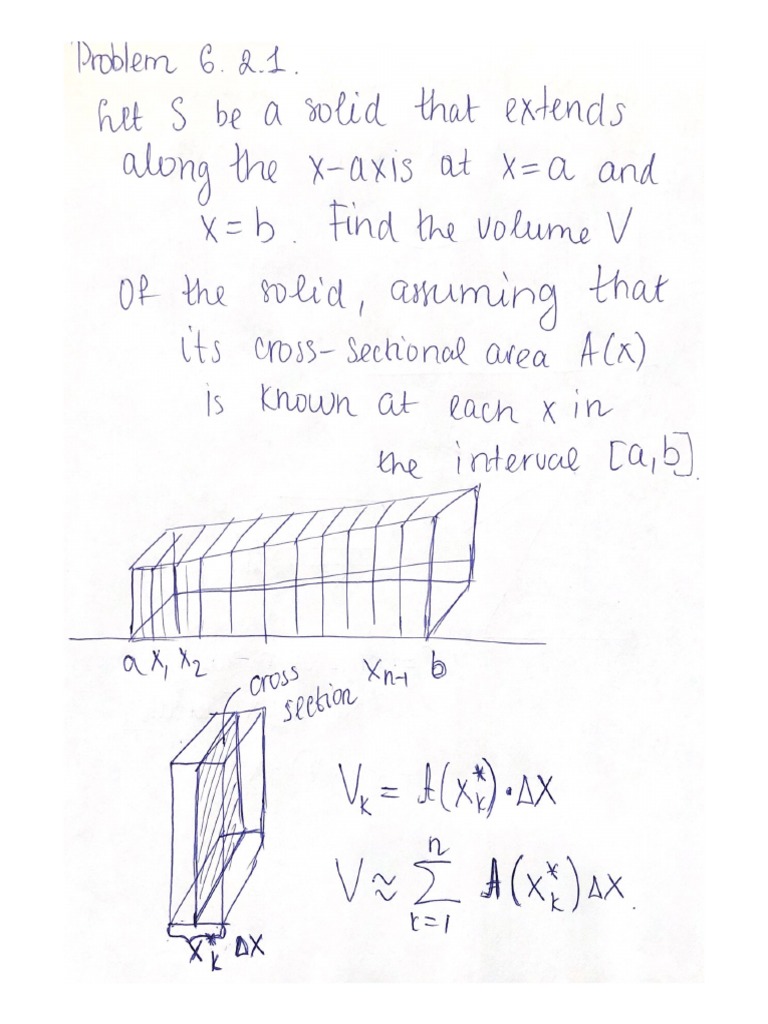 Problem 6.2.1.
Let S be a solid that extends
along the x-axis at x=a and
x=b. Find the volume V
Of the solid, assuming that
its cross-sectional area A(x)
is known at each x in
the interval [a,b].
a x₁ x₂ xₙ₋₁ b
cross
section
Vₖ = A(xₖ*)·Δx
n
V ≈ Σ A(xₖ*)Δx.
k=1
xₖ* Δx